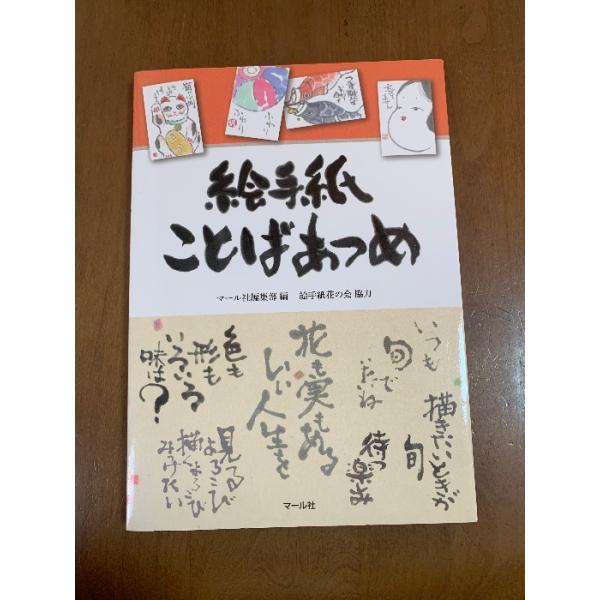 ふわり
ふわり
絵手紙
ことばあつめ
マール社編集部 編　絵手紙花の会 協力
いつも
旬で
いたいね
描きたいときが
旬
待つ楽しみ
花も実もある
いい人生を
色も
形も
いろいろ
味は?
見る
よろこび
描くよろこび
みつけたい
マール社